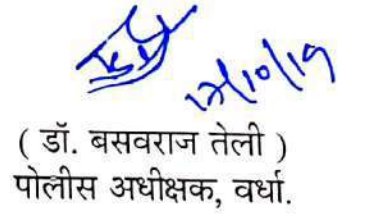 17/10/19
( डॉ. बसवराज तेली )
पोलीस अधीक्षक, वर्धा.